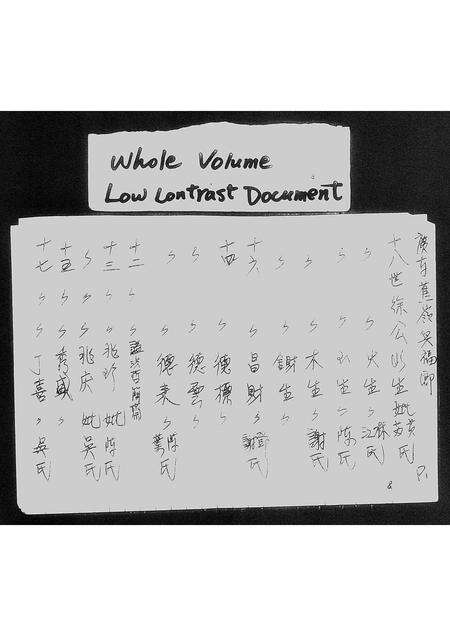 Whole Volume
Low Contrast Document
廣東蕉嶺吳福郎
十八世徐公彤生妣黃氏
〃 〃 火生 〃 江林氏
〃 〃 生 〃 陳氏
〃 〃 木生 〃 謝氏
〃 〃 謝生 〃
十六 〃 〃 昌財 〃 謝鄧氏
十四 〃 〃 德標 〃
〃 〃 德雲 〃
〃 〃 德來 〃 陳氏
十二 〃
十三 〃 〃 兆珍 妣陳氏
〃 〃 〃 兆庆 妣吳氏
十五 〃 〃 秀盛 〃
十七 〃 〃 丁喜 〃 吳氏
P1